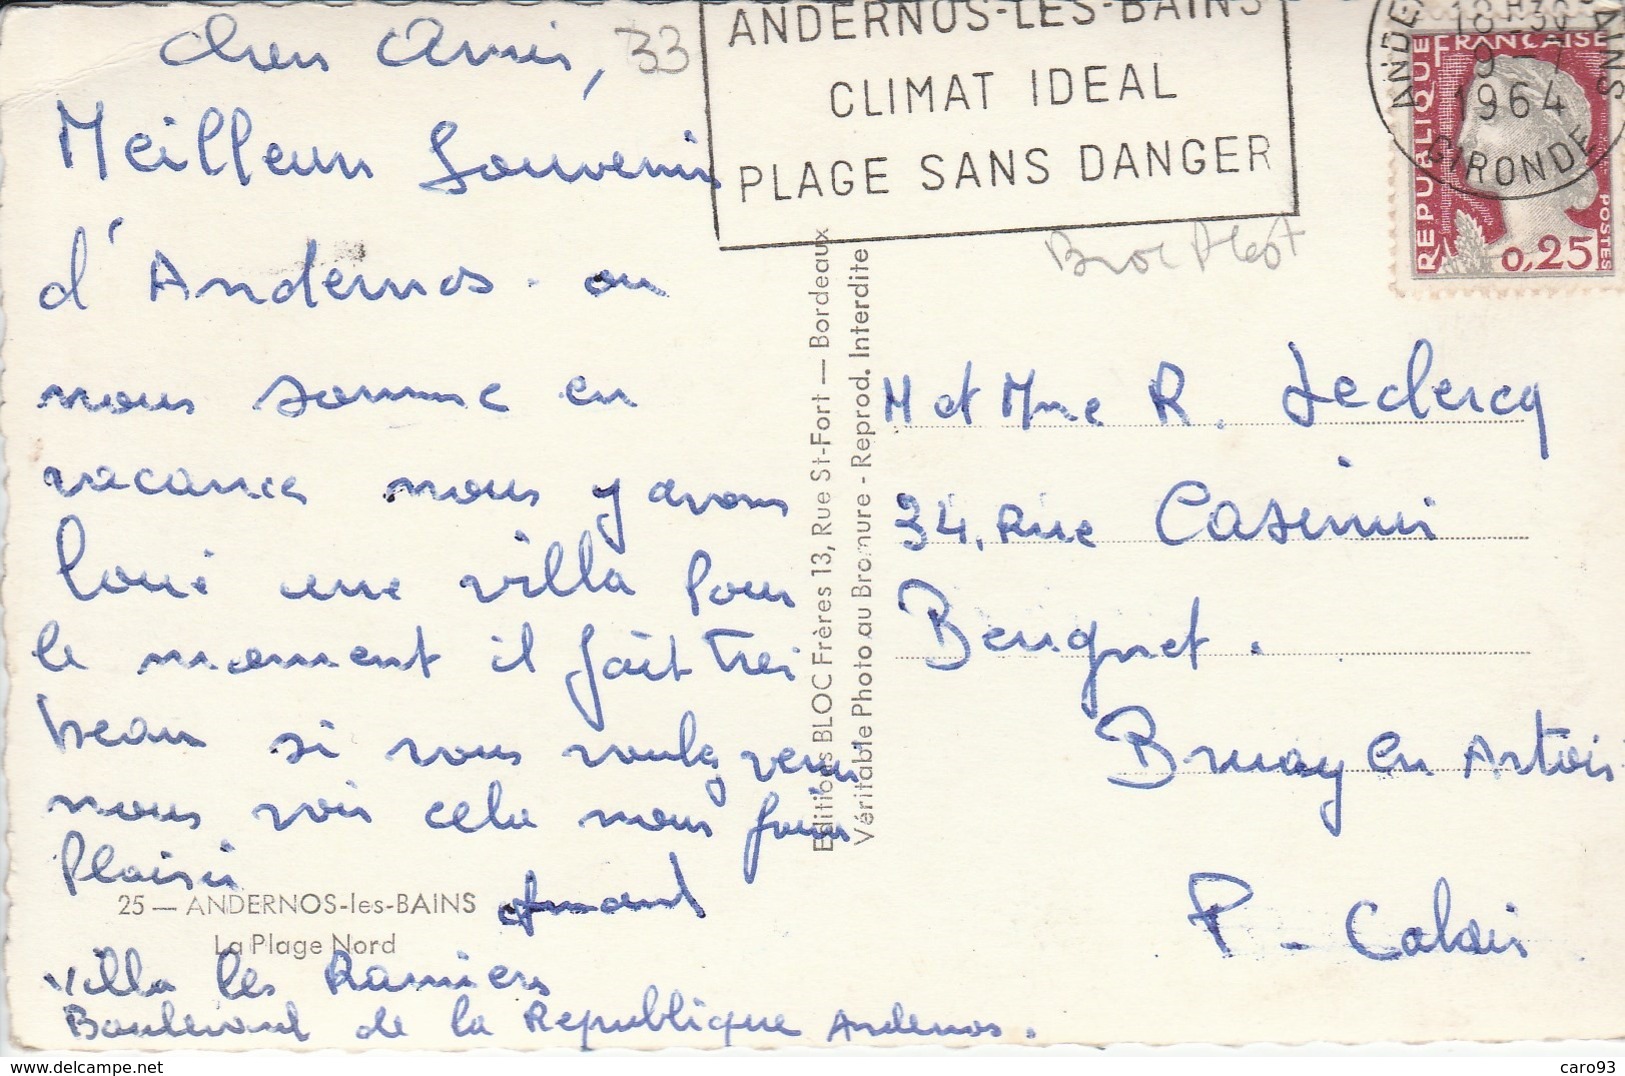 Chers Amis, 33
Meilleurs Souvenirs
d'Andernos. ou
nous somme en
vacances nous y avons
loué une villa pour
le moment il fait tres
beau si vous voulez venir
nous voir cela nous faira
Plaisir
Armand
villa les Ramiers
Boulevard de la Republique Andernos.
25 — ANDERNOS-les-BAINS
La Plage Nord
Editions BLOC Frères 13, Rue St-Fort — Bordeaux
Véritable Photo au Bromure - Reprod. Interdite
ANDERNOS-LES-BAINS
CLIMAT IDEAL
PLAGE SANS DANGER
18 H30
9 - 7
1964
GIRONDE
REPUBLIQUE FRANÇAISE
POSTES
0,25
M et Mme R. Leclercq
34, Rue Casimir
Beugnet.
Bruay en Artois
P - Calais
caro93